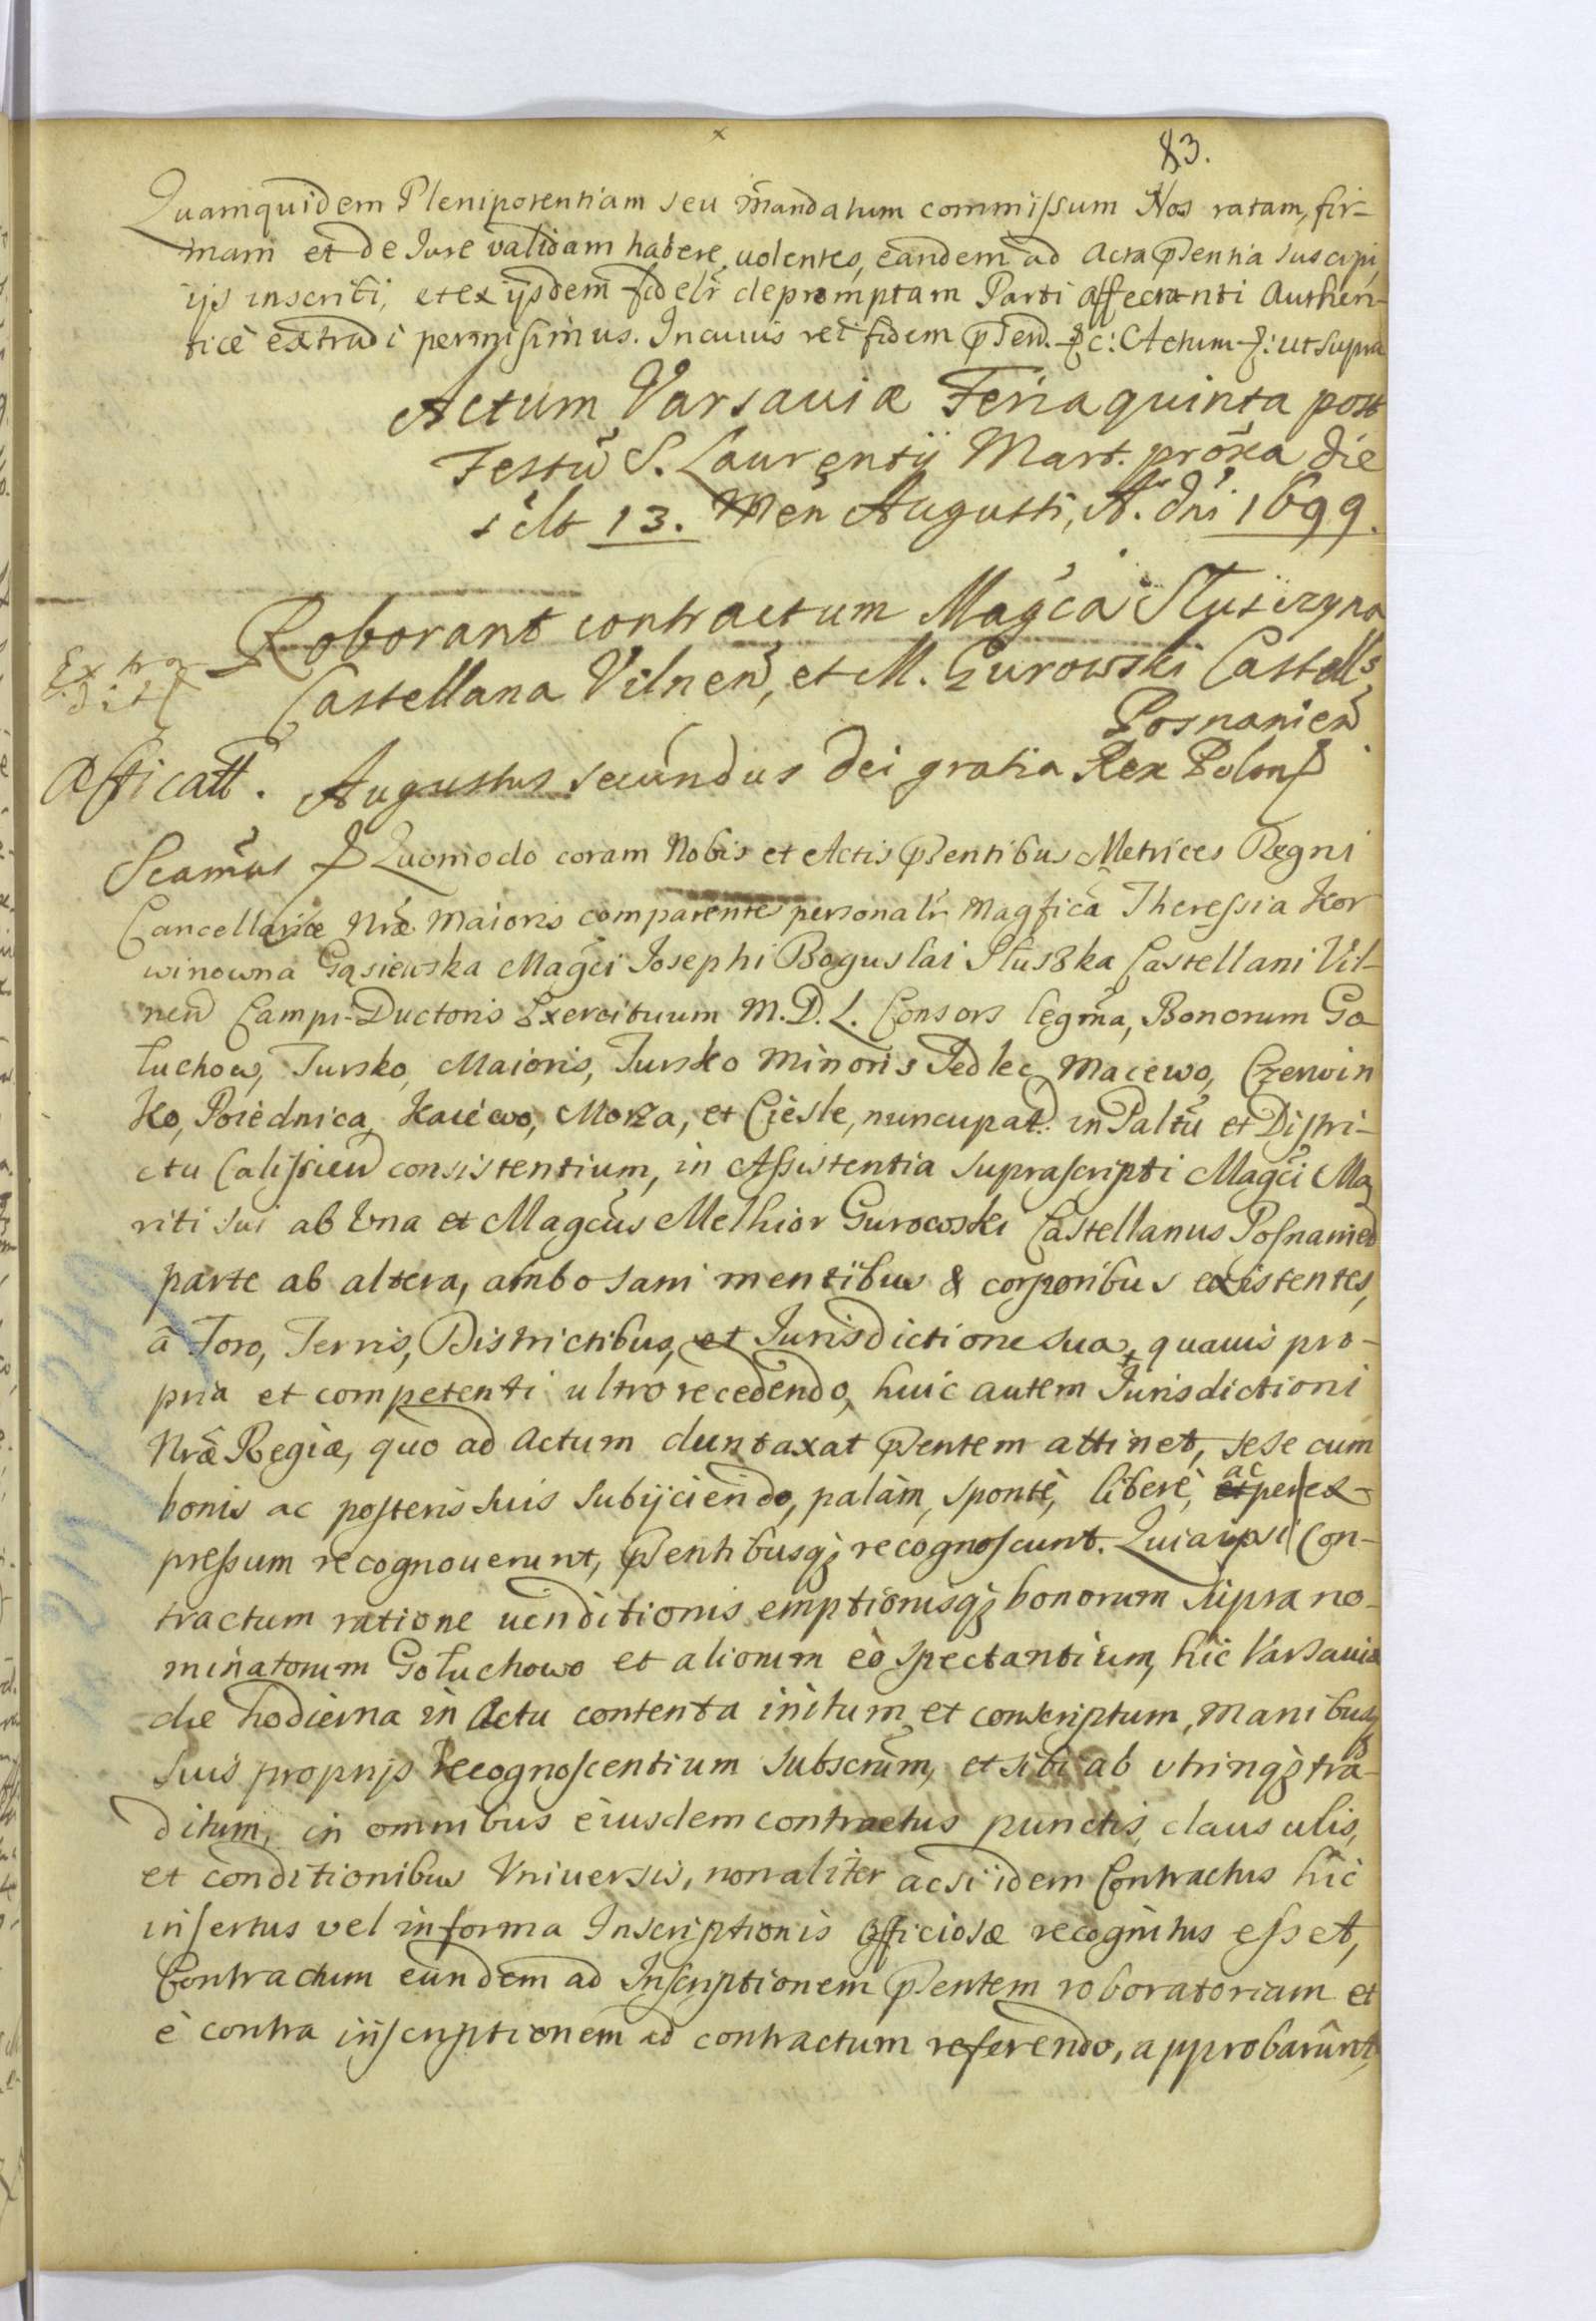 83.
Quamquidem Plenipotentiam seu mãndatum commissum Nos ratam, fir-
mam et de Iure validam habere uolentes, eandem ad Acta pñsentia suscipi,
ijs inscribi, et ex ijsdem fidelr̃ depromptam Parti affectanti Authen-
ticè extradi permisimus. In cuius rei fidem pñsen. &c: Actum &: ut supra
Actum Varsauiæ Feria quinta post
Festũ S. Laurentij Mart. prõxa die
sclt 13. Men̄ Augusti, A. Dñi 1699.
Roborant contractum Magcã Słusczyna
Castellana Vilnen̄, et M. Gurowski Castells
Posnanien̄
Extra
dit
Afficatt. Augustus secundus Dei gratia Rex Polon &
Scamũs & Quomodo coram Nobis et Actis pñsentibus Metrices Regni
Cancellariæ Nræ̃ Maioris comparentes personalr̃ Magficã Theressia Kor
winowna Gąsiewska Magcĩ Josephi Boguslai Słuszka Castellani Vil-
nen̄ Campi-Ductoris Exercituum M. D. L. Consors legmã, Bonorum Go
łuchow, Tursko Maioris, Tursko Minoris Jedlec, Macewo, Czerwin
ko, Poiednica, Kaiewo, Morza, et Cieśle, nuncupat. in Paltũ et Distri-
ctu Calissien̄ consistentium, in Assistentia suprascripti Magcĩ Ma
riti sui ab Vna et Magcũs Melhior Gurowski Castellanus Posnanien̄
parte ab altera, ambo sani mentibus & corporibus existentes,
à Foro, Terris, Districtibus, et Iurisdictione sua, quauis pro-
pria et competenti ultro recedendo, huic autem Iurisdictioni
Nræ̃ Regiæ, quo ad Actum duntaxat pñsentem attinet, sese cum
bonis ac posteris suis subijciendo, palàm, spontè, liberè, ac per ex-
pressum recognouerunt, pñsentibusq; recognoscunt. Quia ipsi Con-
tractum ratione uenditionis emptionisq; bonorum supra no-
minatorum Gołuchowo et aliorum eò spectantium, hic Varsauiæ
die hodierna in Actu contenta initum et conscriptum, manibusq;
suis proprijs Recognoscentium subscrũm, et sibi ab utrinq; tra-
ditum, in omnibus eiusdem contractus punctis, clausulis,
et conditionibus Vniuersis, non aliter ac si idem Contractus hic
insertus vel in forma Inscriptionis officiosæ recognitus esset,
Contractum eundem ad Inscriptionem pñsentem roboratoriam et
è contra inscriptionem ad contractum referendo, approbarunt,